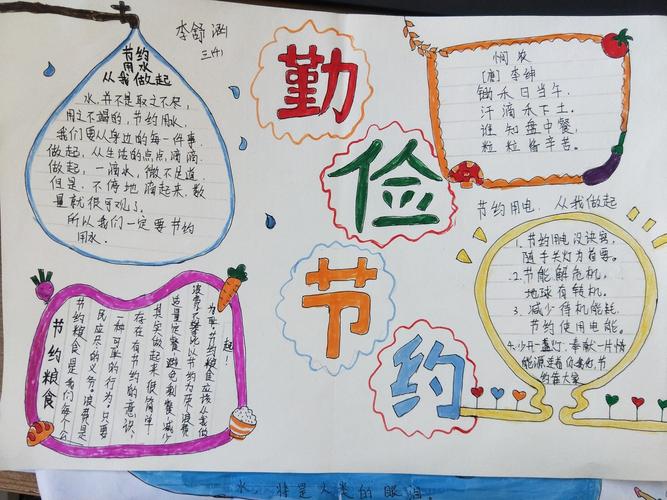 李舒涵
三(4)
节约
用水
从我做起
水,并不是取之不尽,
用之不竭的,节约用水,
我们要从身边的每一件事
做起,从生活的点点滴滴
做起,一滴水,微不足道
但是,不停地滴起来,数
量就很可观了。
所以我们一定要节约
用水。
勤
俭
节
约
悯农
[唐]李绅
锄禾日当午,
汗滴禾下土。
谁知盘中餐,
粒粒皆辛苦。
节约用电,从我做起
1.节约用电没诀窍,
随手关灯为首要。
2.节能解危机,
地球有转机。
3.减少待机能耗,
节约使用电能。
4.少开一盏灯,奉献一片情
能源连着你我他,节
约靠大家
节约粮食
节约粮食是我们每个公
民应尽的义务。浪费是
一种可耻的行为,只要
存在有节约的意识,
其实做起来很简单
适量定餐,避免剩餐,减少
浪费不攀比以节约为荣浪费
为耻节约粮食应该从我做
起!
水,将是人类的眼泪